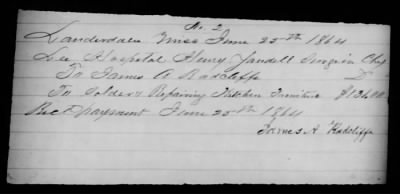 No. 2
Lauderdale Miss June 25th 1864
Lee Hospital Henry Yandell Surgeon Chg
To James A Radcliffe D
To Solder & Repairing Kitchen Furniture $136.00
Recd payment June 25th 1864
James A Radcliffe